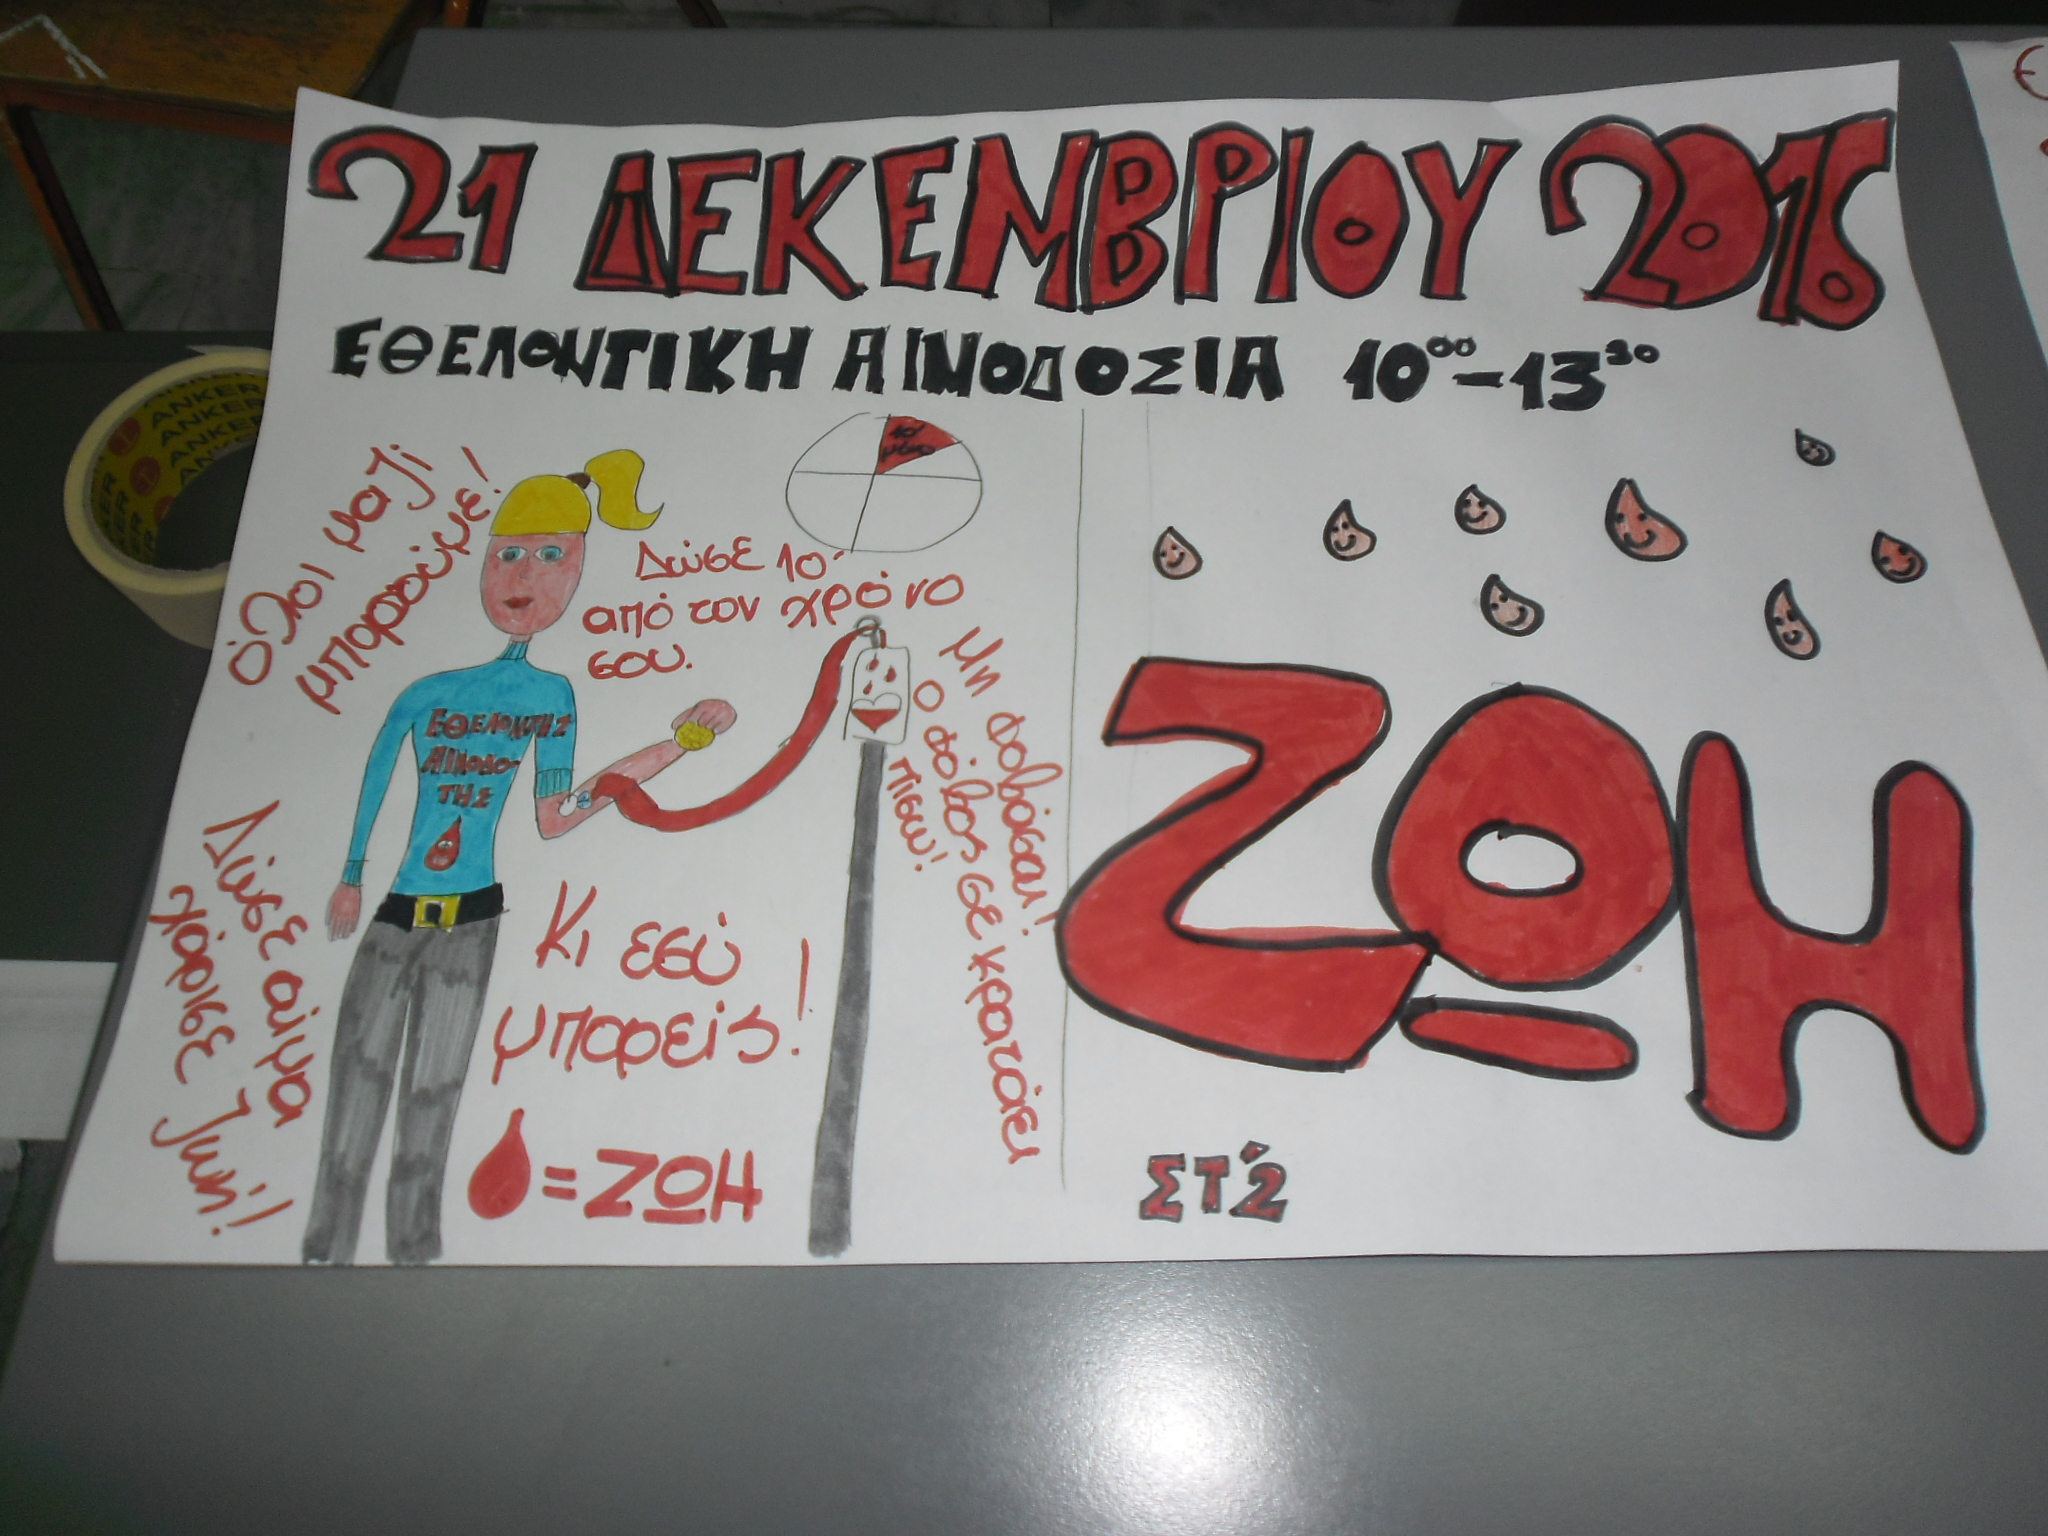 21 ΔΕΚΕΜΒΡΙΟΥ 2016
ΕΘΕΛΟΝΤΙΚΗ ΑΙΜΟΔΟΣΙΑ 10⁰⁰-13³⁰
Όλοι μαζί
μπορούμε!
10'
μόνο
Δώσε 10'
από τον χρόνο
σου.
Μη φοβάσαι!
Ο φόβος σε κρατάει
πίσω!
ΕΘΕΛΟΝΤΗΣ
ΑΙΜΟΔΟ-
ΤΗΣ
Δώσε αίμα
χάρισε ζωή!
Κι εσύ
μπορείς!
= ΖΩΗ
ΖΩΗ
ΣΤ'2
ANKER
ANKER
ANKER